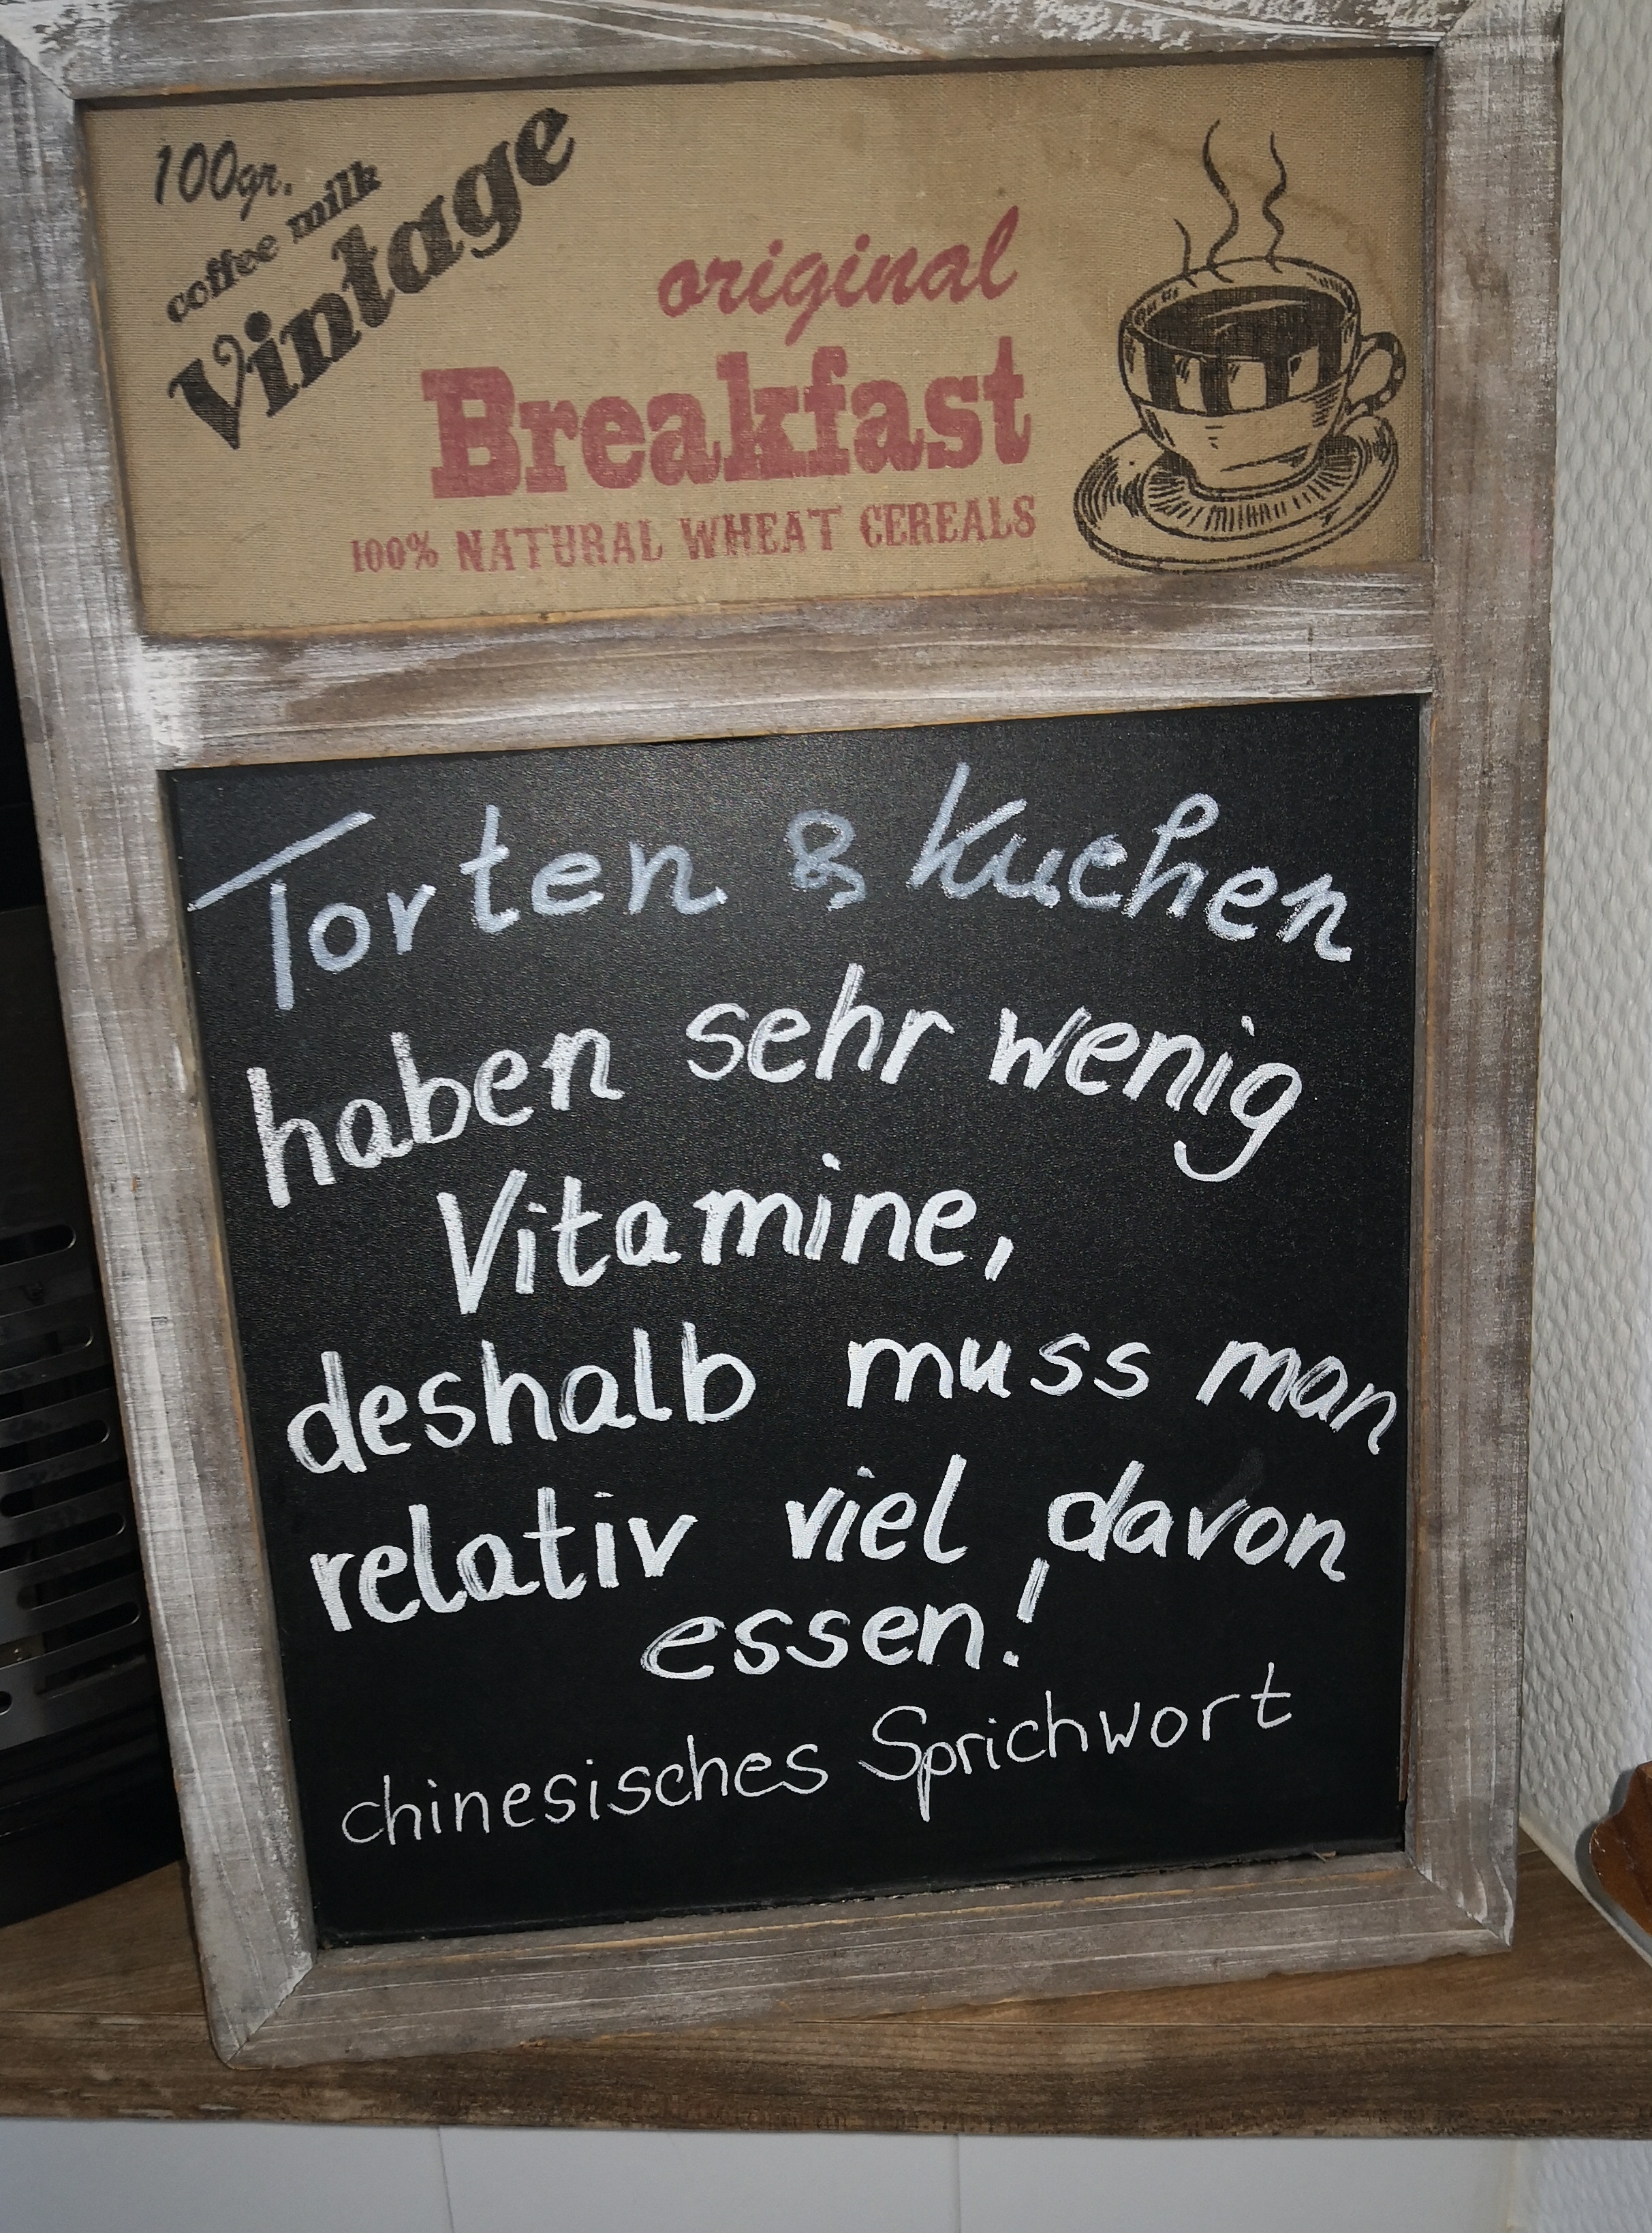 100gr.
coffee milk
Vintage
original
Breakfast
100% NATURAL WHEAT CEREALS
Torten & Kuchen
haben sehr wenig
Vitamine,
deshalb muss man
relativ viel davon
essen!
chinesisches Sprichwort